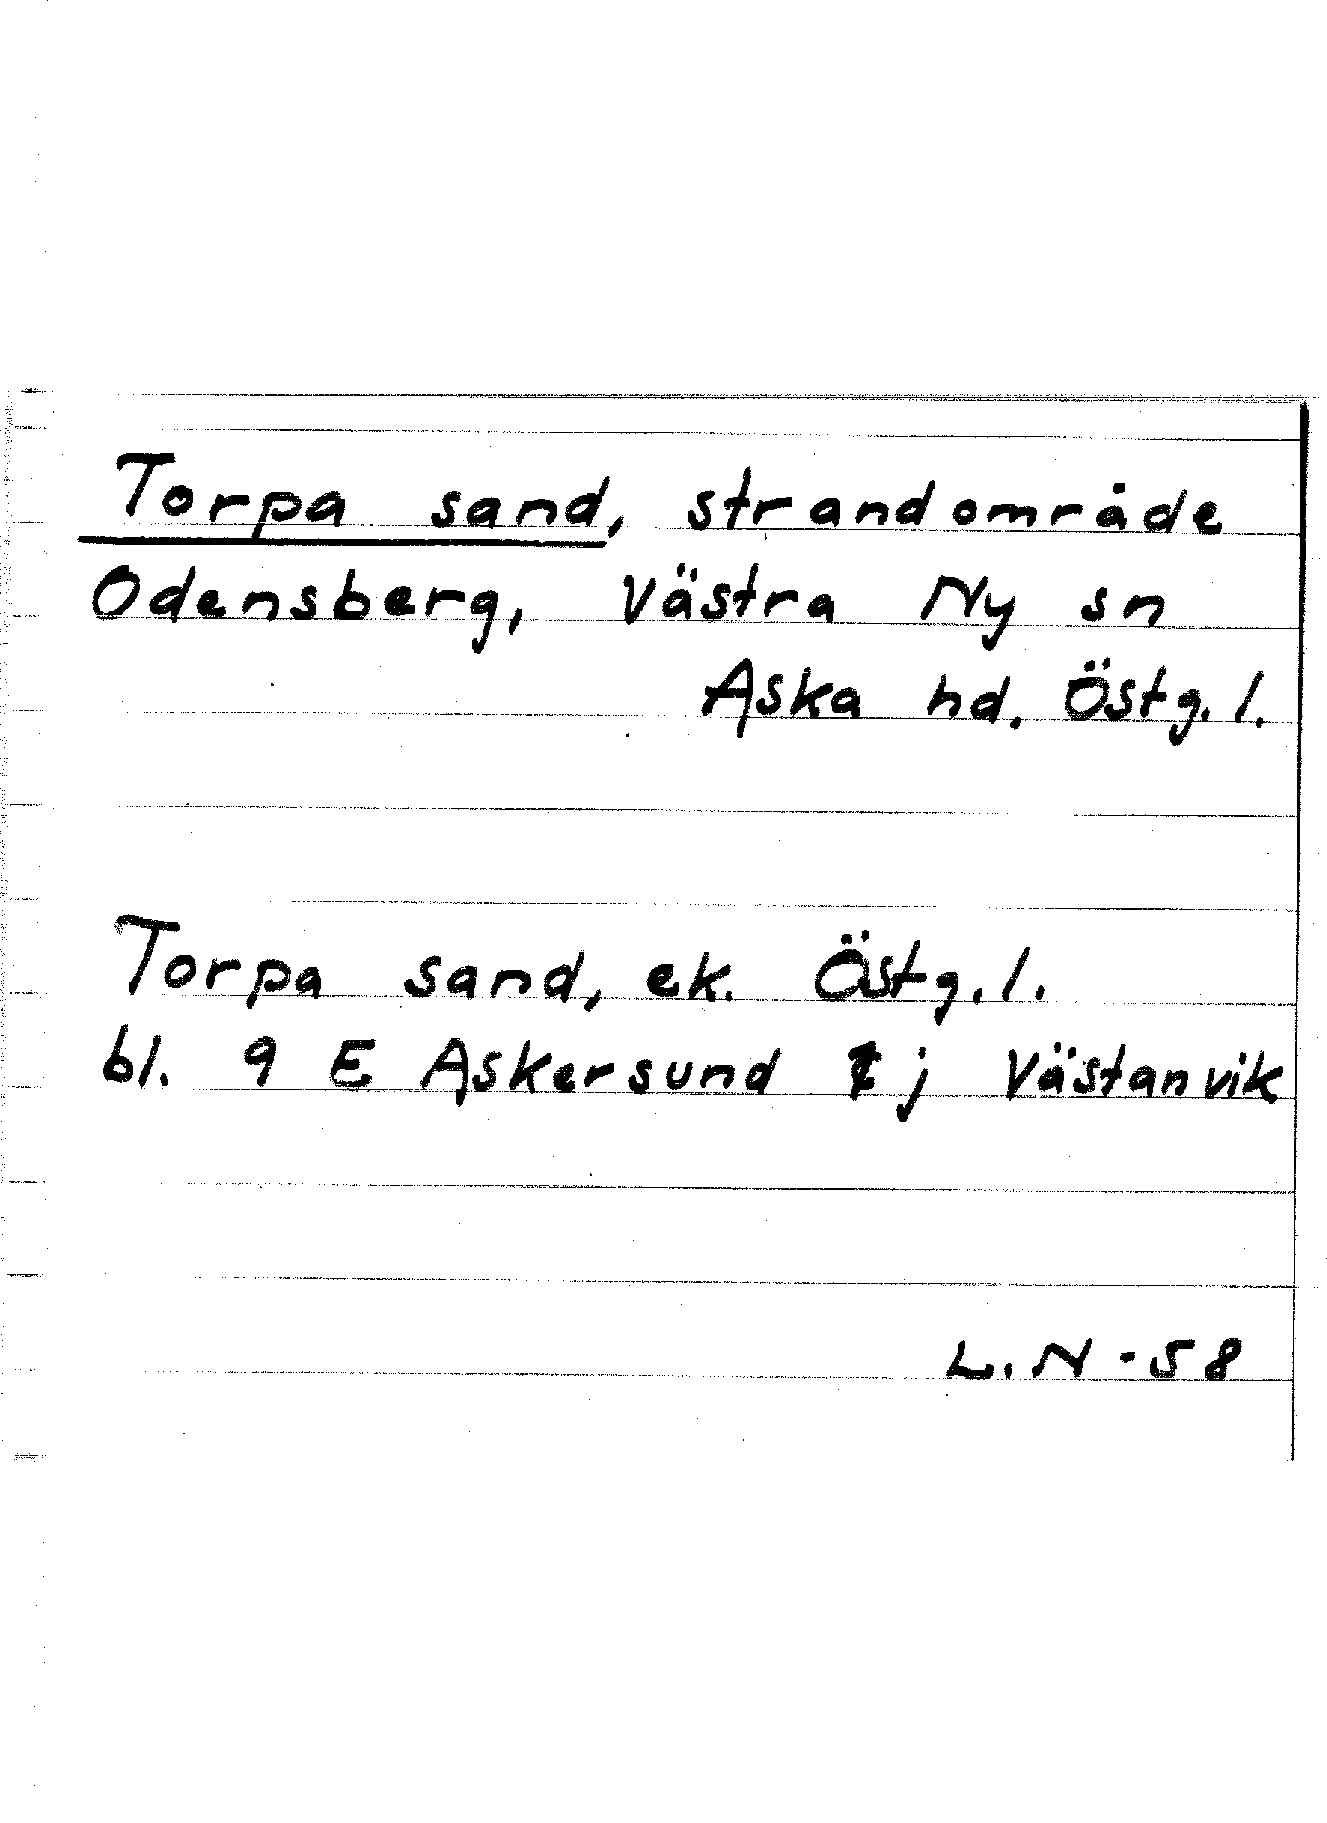 Torpa sand, strandområde
Odensberg, Västra Ny sn
Aska hd. Östg. l.
Torpa sand, ek. Östg. l.
bl. 9 E Askersund j Västanvik
L. N - 58